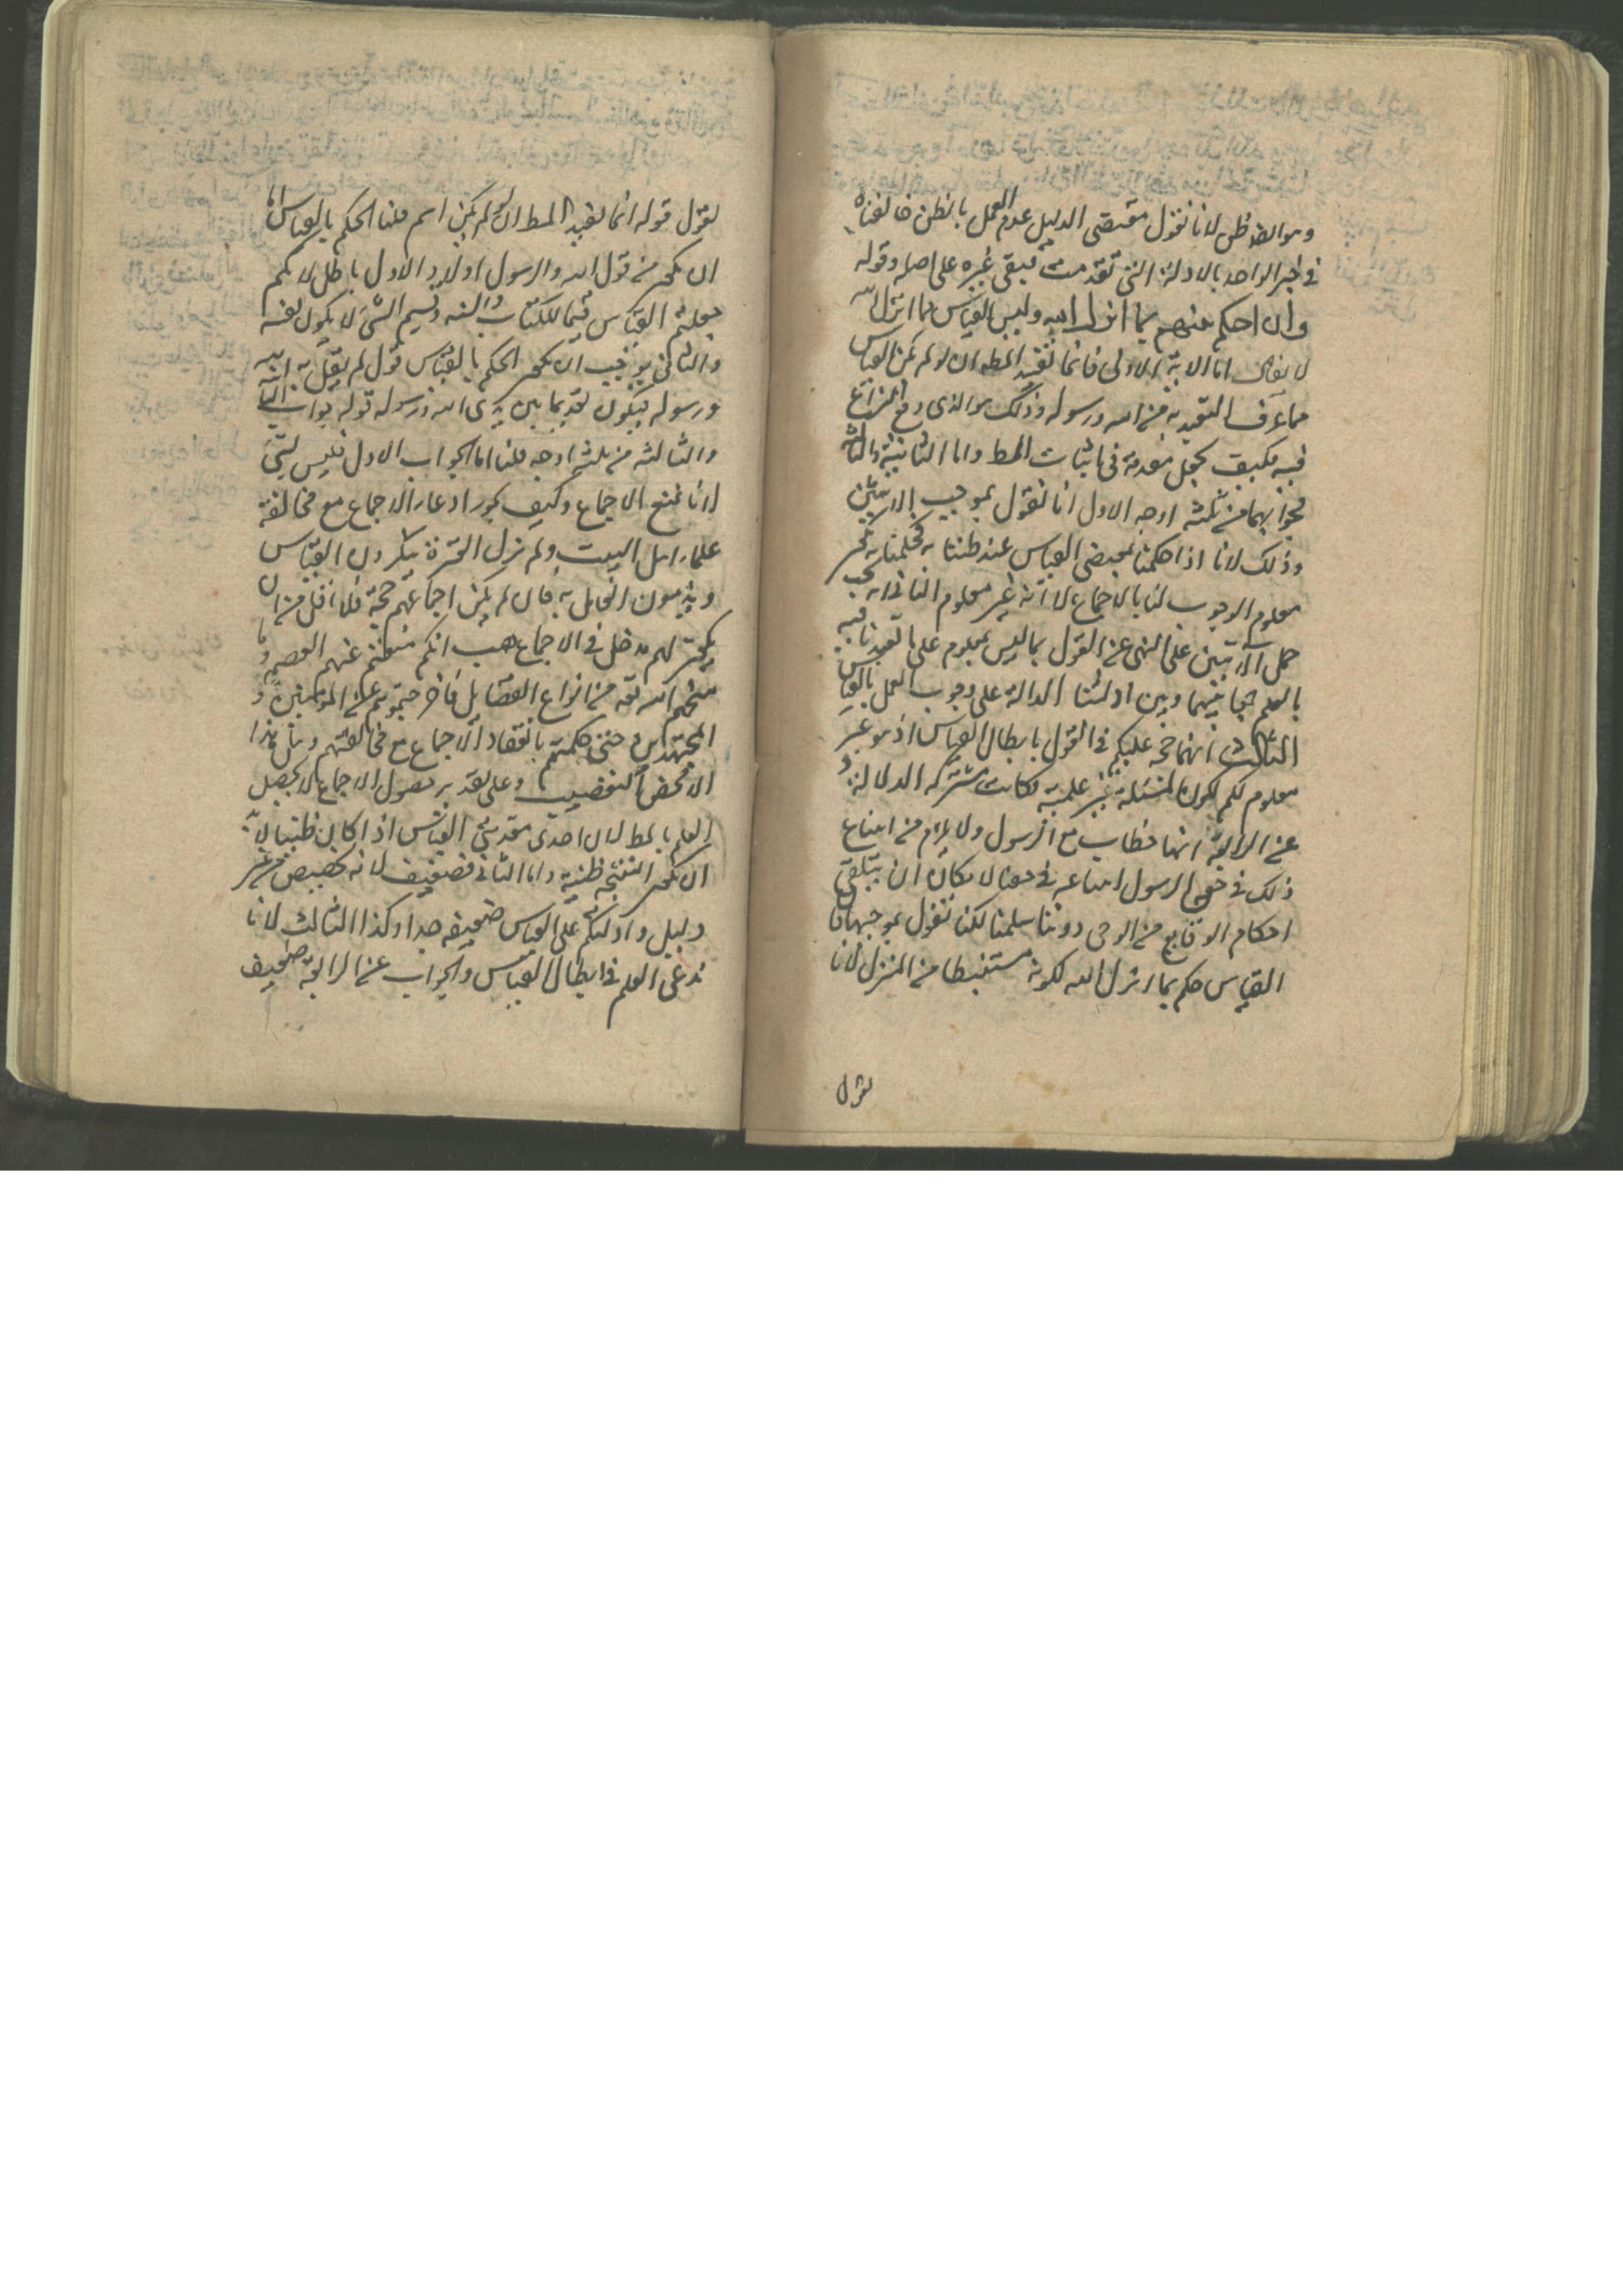 وهو ايضا ظن لانا نقول مقتضى الدليل عدم العمل بالظن خالفناه
فى خبر الواحد بالادلة التى تقدمت فيبقى غيره على اصله وقوله
وان احكم بينهم بما انزل الله وليس القياس مما انزل الله
لا يقال اما الاية الاولى فانما تفيد المط ان لو لم يكن القياس
مما عرف التعبد به من الله ورسوله وذلك هو الذى وقع النزاع
فيه فكيف يجعل مقدمة فى اثبات المط واما الثانية والثالثة
فجوابهما من ثلثه اوجه الاول انا نقول بموجب الايتين
وذلك لانا اذا حكمنا بمقتضى القياس عند ظننا به فحكمنا به يكون
معلوم الوجوب لنا بالاجماع لا انه غير معلوم الثانى انه يجب
حمل الايتين على النهى عن القول بما ليس بمعلوم على ما تعبدنا فيه
بالعلم جمعا بينهما وبين ادلتنا الدالة على وجوب العمل بالقياس
الثالث انهما حجة عليكم فى القول بابطال القياس اذ هو غير
معلوم لكم لكون المسئلة غير علمية فكانت مشتركه الدلالة و
عن الرابعة انها خطاب مع الرسول ولا يلزم من امتناع
ذلك فى حق الرسول امتناعه فى حقنا لامكان ان يتلقى
احكام الوقايع من الوحى دوننا سلمنا لكن نقول بموجبها فان
القياس حكم بما انزل الله لكونه مستنبطا من المنزل لانا
نقول
نقول قوله انما يفيد المط ان لو لم يكن اسم قلنا الحكم بالقياس اما
ان يكون من قول الله والرسول اولا والاول باطل لانكم
جعلتم القياس قسيما للكتاب والسنه وقسيم الشى لا يكون نفسه
والثانى يوجب ان يكون الحكم بالقياس قول لم يقل به الله
ورسوله فيكون تقديما بين يدى الله ورسوله قوله جواب الثانية
والثالثه من ثلثه اوجه قلنا اما الجواب الاول فليس بشى
لانا نمنع الاجماع وكيف يجوز ادعاء الاجماع مع مخالفة
علماء اهل البيت ولم تزل العترة ينكرون القياس
ويذمون العامل به فان لم يكن اجماعهم حجة فلا اقل من ان
يكون لهم مدخل فى الاجماع هب انكم منعتم عنهم العصمه وما
منحهم الله تعه من انواع الفضايل فاخرجتموهم عن المومنين و
المجتهدين حتى حكمتم بانعقاد الاجماع مع مخالفتهم وهل هذا
الا محض التعصب وعلى تقدير حصول الاجماع لا يحصل
العلم بالمط لان احدى مقدمتى القياس اذا كان ظنيا لا بد
ان يكون النتيجه ظنية واما الثانى فضعيف لانه تخصيص من غير
دليل وادلتكم على القياس ضعيفه جدا وكذا الثالث لانا
ندعى العلم فى ابطال القياس والجواب عن الرابعة ضعيف